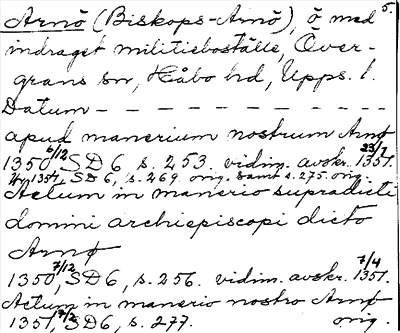 Arnö (Biskops-Arnö), ö med 5.
indraget militieboställe, Över-
grans sn, Håbo hd, Upps. l.
Datum – – – – – – – – –
apud manerium nostrum Arnø
1350 6/12 SD 6, s. 253. vidim. avskr. 23/7 1351.
1351, SD 6, s. 269 orig. samt s. 275 orig.
Actum in manerio supradicti
domini archiepiscopi dicto
Arnø
1350, 7/12 SD 6, s. 256. vidim. avskr. 7/4 1351.
Actum in manerio nostro Arnø
1351, 7/2 SD 6, s. 277. orig.